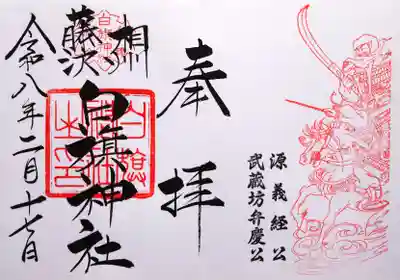 奉拝
相州
藤沢
白旗神社
令和八年二月十七日
源義経公
武蔵坊弁慶公